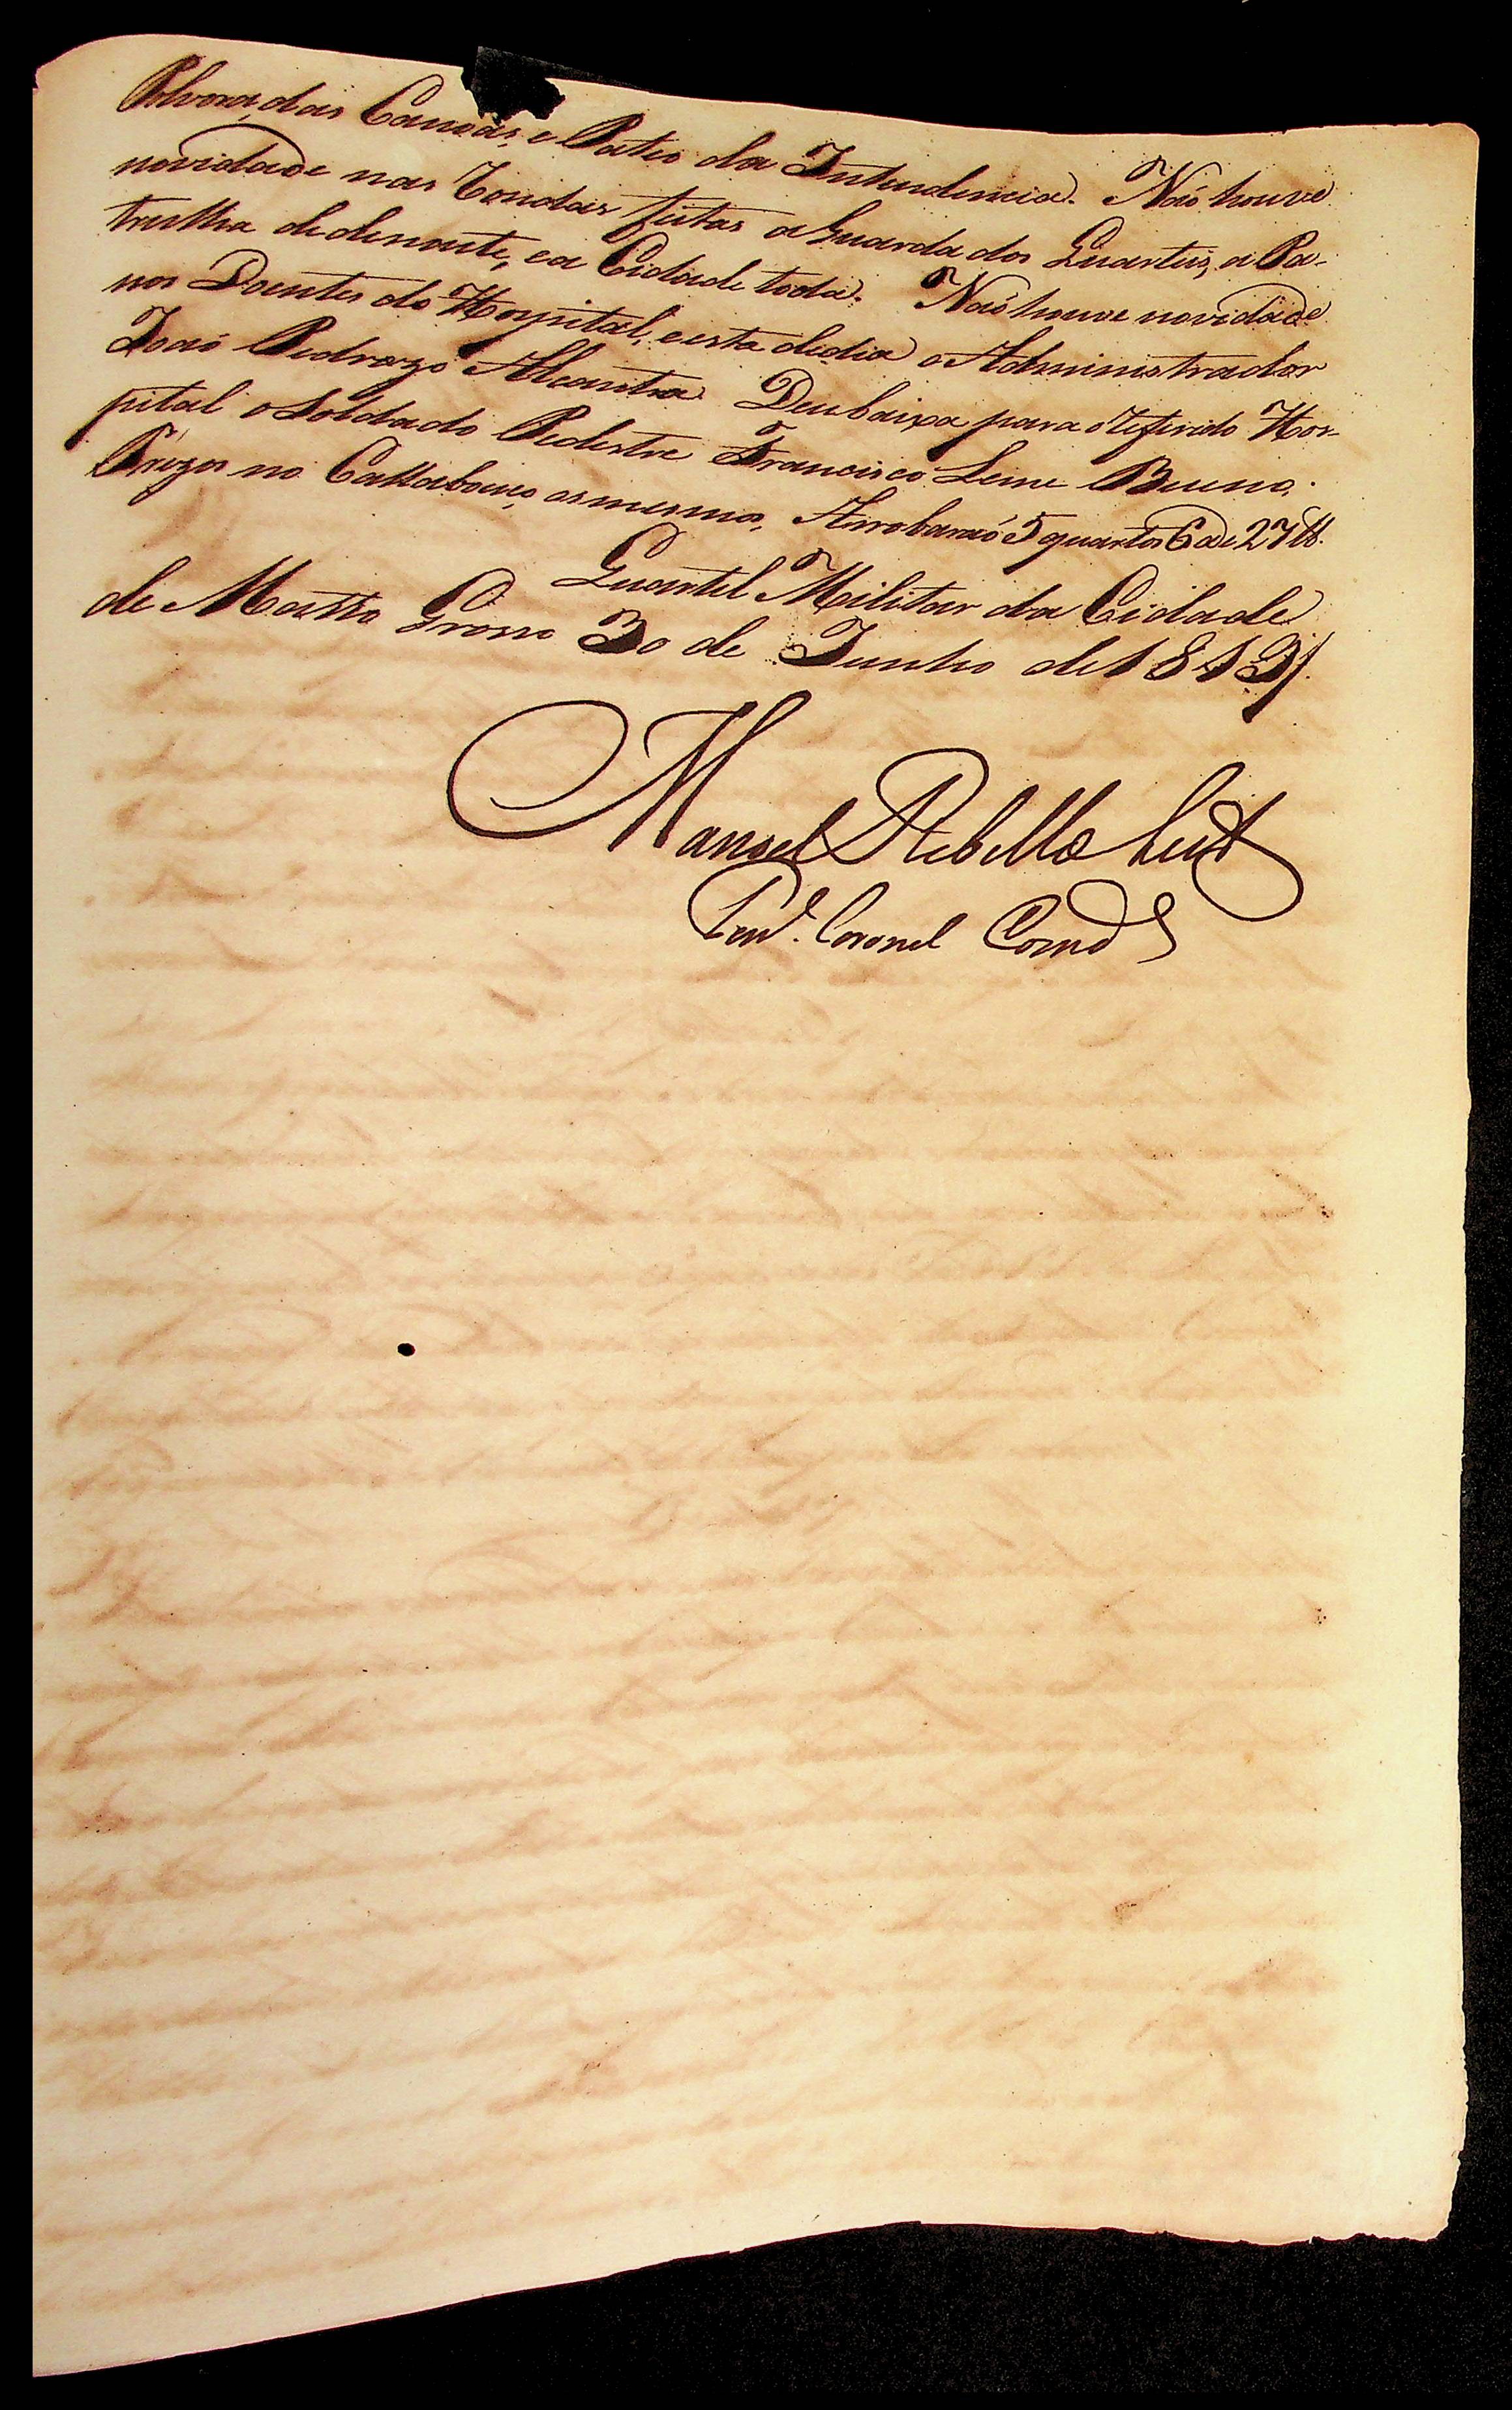 Polvora, das Canoas, e Patio da Intendencia. Naõ houve
novidade nas Rondas feitas a Guarda dos Quarteis, a Pa-
trulha dedenoute, ea Cidade toda. Naõ houve novidade
nos Doentes do Hospital, eesta dedia o Administrador
Joaõ Pedrozo Alcantra. Deubaixa para oreferido Hos-
pital o Soldado Pedestre Francisco Leme Bueno.
Prezos no Callabouço, osmesmos, Arrobaraõ 5 quartos 6@ e 27 lb.
Quartel Militar da Cidade
de Matto Grosso 30 de Junho de 1819
Manoel Rebello
Ten.e Coronel Comd.e